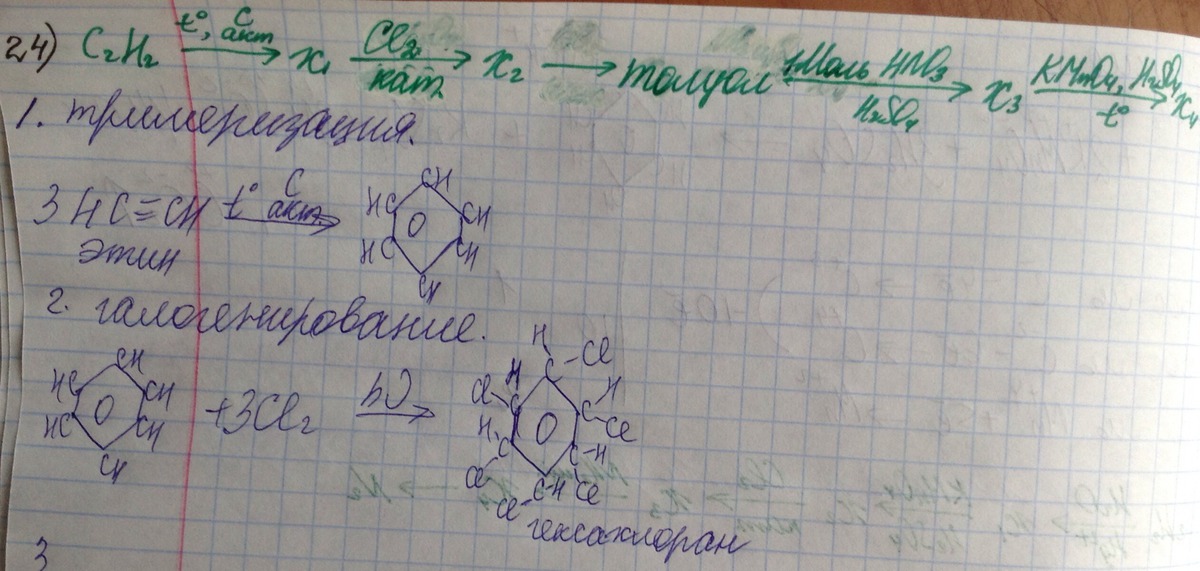 24) C₂H₂ t°, C акт → X₁ Cl₂ кат. → X₂ → толуол 1 моль HNO₃ H₂SO₄ → X₃ KMnO₄, H₂SO₄ t° → X₄
1. тримеризация.
3 HC≡CH t° C акт. → HC CH CH CH CH HC
этин
2. галогенирование.
HC CH CH CH CH HC + 3Cl₂ hν → H C Cl H C Cl C H Cl C H Cl H C Cl H C Cl
гексахлоран
3